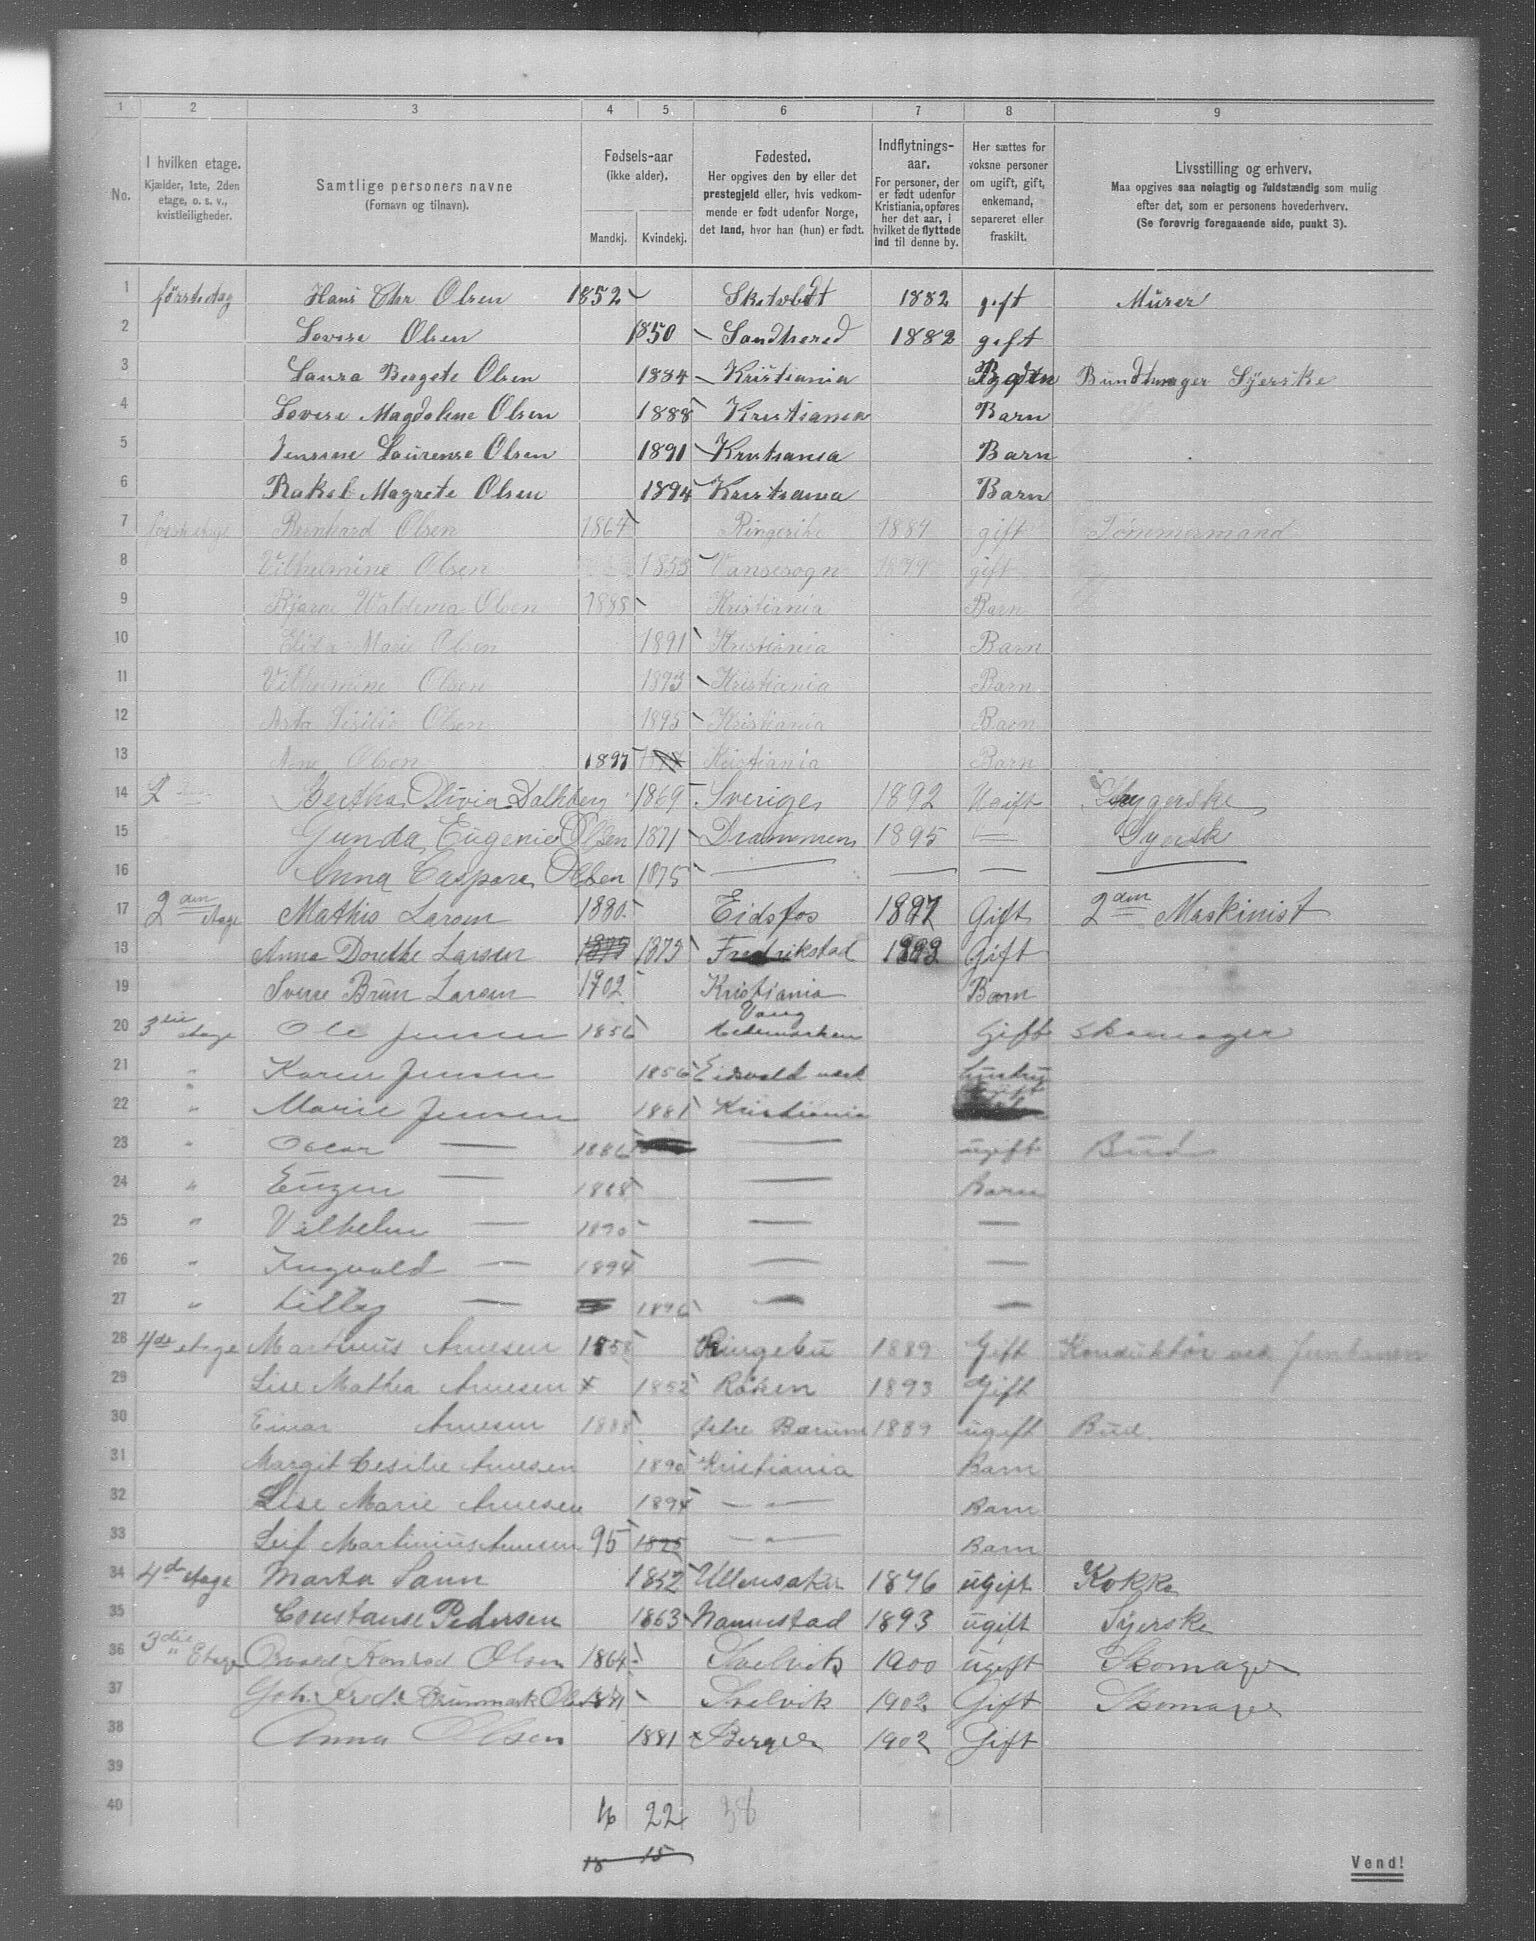 1 2 3 4 5 6 7 8 9
No.
I hvilken etage.
Kjælder, 1ste, 2den
etage, o. s. v.,
kvistleiligheder.
Samtlige personers navne
(Fornavn og tilnavn).
Fødsels-aar
(ikke alder).
Mandkj. Kvindekj.
Fødested.
Her opgives den by eller det
prestegjeld eller, hvis vedkom-
mende er født udenfor Norge,
det land, hvor han (hun) er født.
Indflytnings-
aar.
For personer, der
er født udenfor
Kristiania, opføres
her det aar, i
hvilket de flyttede
ind til denne by.
Her sættes for
voksne personer
om ugift, gift,
enkemand,
separeret eller
fraskilt.
Livsstilling og erhverv.
Maa opgives saa nøiagtig og fuldstændig som mulig
efter det, som er personens hovederhverv.
(Se forøvrig foregaaende side, punkt 3).
1 Hans Chr Olsen 1852 1882 gift Mürer
2 Lovise Olsen 1850 Sandhered 1882 gift
3 Laura Bergete Olsen 1884 Kristiania Bundtmager Syerske
4 Lovise Magdalene Olsen 1888 Kristiania Barn
5 Laurense Olsen 1891 Kristiania Barn
6 Rakel Magrete Olsen 1894 Kristiania Barn
7 Bernhard Olsen 1864 Ringerike 1884 gift Tømmermand
8 Vilhelmine Olsen 1853 Vansesogn gift
9 Bjarne Olsen 1888 Kristiania Barn
10 Elida Marie Olsen 1891 Kristiania Barn
11 Vilhelmine Olsen 1893 Kristiania Barn
12 Olsen 1895 Kristiania Barn
13 Arne Olsen 1897 Kristiania Barn
14 2 Bertha Olivia Dalhberg 1869 Sverige 1892 Ugift
15 Gunda Eugenie Olsen 1871 Drammen 1895 — Syersk
16 Anna Caspara Olsen 1875 — — — —
17 2den etage Mathis Larsen 1880 Eidsfos 1897 Gift 2den Maskinist
18 Anna Dorethe Larsen 1875 Fredrikstad Gift
19 Sverre Brün Larsen 1902 Kristiania Barn
20 3die etage Ole Jensen 1856 Vang Hedemarken Gift Skomager
21 " Karen Jensen 1856 Eidsvold værk hustru
22 " Marie Jensen 1881 Kristiania
23 " Oscar — 1886 — ugift Bud
24 " Eugen — 1888 — Barn
25 " Vilhelm — 1890 — —
26 " Ingvald — 1894 — —
27 " Lilly — 1896 — —
28 4de etage Martinius Arnesen 1858 Ringebu 1889 Gift Konduktør ved Jernbanen
29 Lise Mathea Arnesen x 1852 Røken 1893 Gift
30 Einar Arnesen 1888 Bærum 1889 ugift Bud
31 Margit Cesilie Arnesen 1890 Kristiania Barn
32 Lise Marie Arnesen 1894 — " — Barn
33 Leif Martinius Arnesen 95 1895 — " — Barn
34 4de etage Marta Sann 1852 Ullensaker 1876 ugift Kokke
35 Constanse Pedersen 1863 Nannestad 1893 ugift Syerske
36 3die Etage Konrad Olsen 1864 Svelvik 1900 ugift Skomager
37 Brünmark Olsen Svelvik 1902 Gift Skomager
38 Anna Olsen 1881 x Berger 1902 Gift
39
40 16 22 38
18 15
Vend!